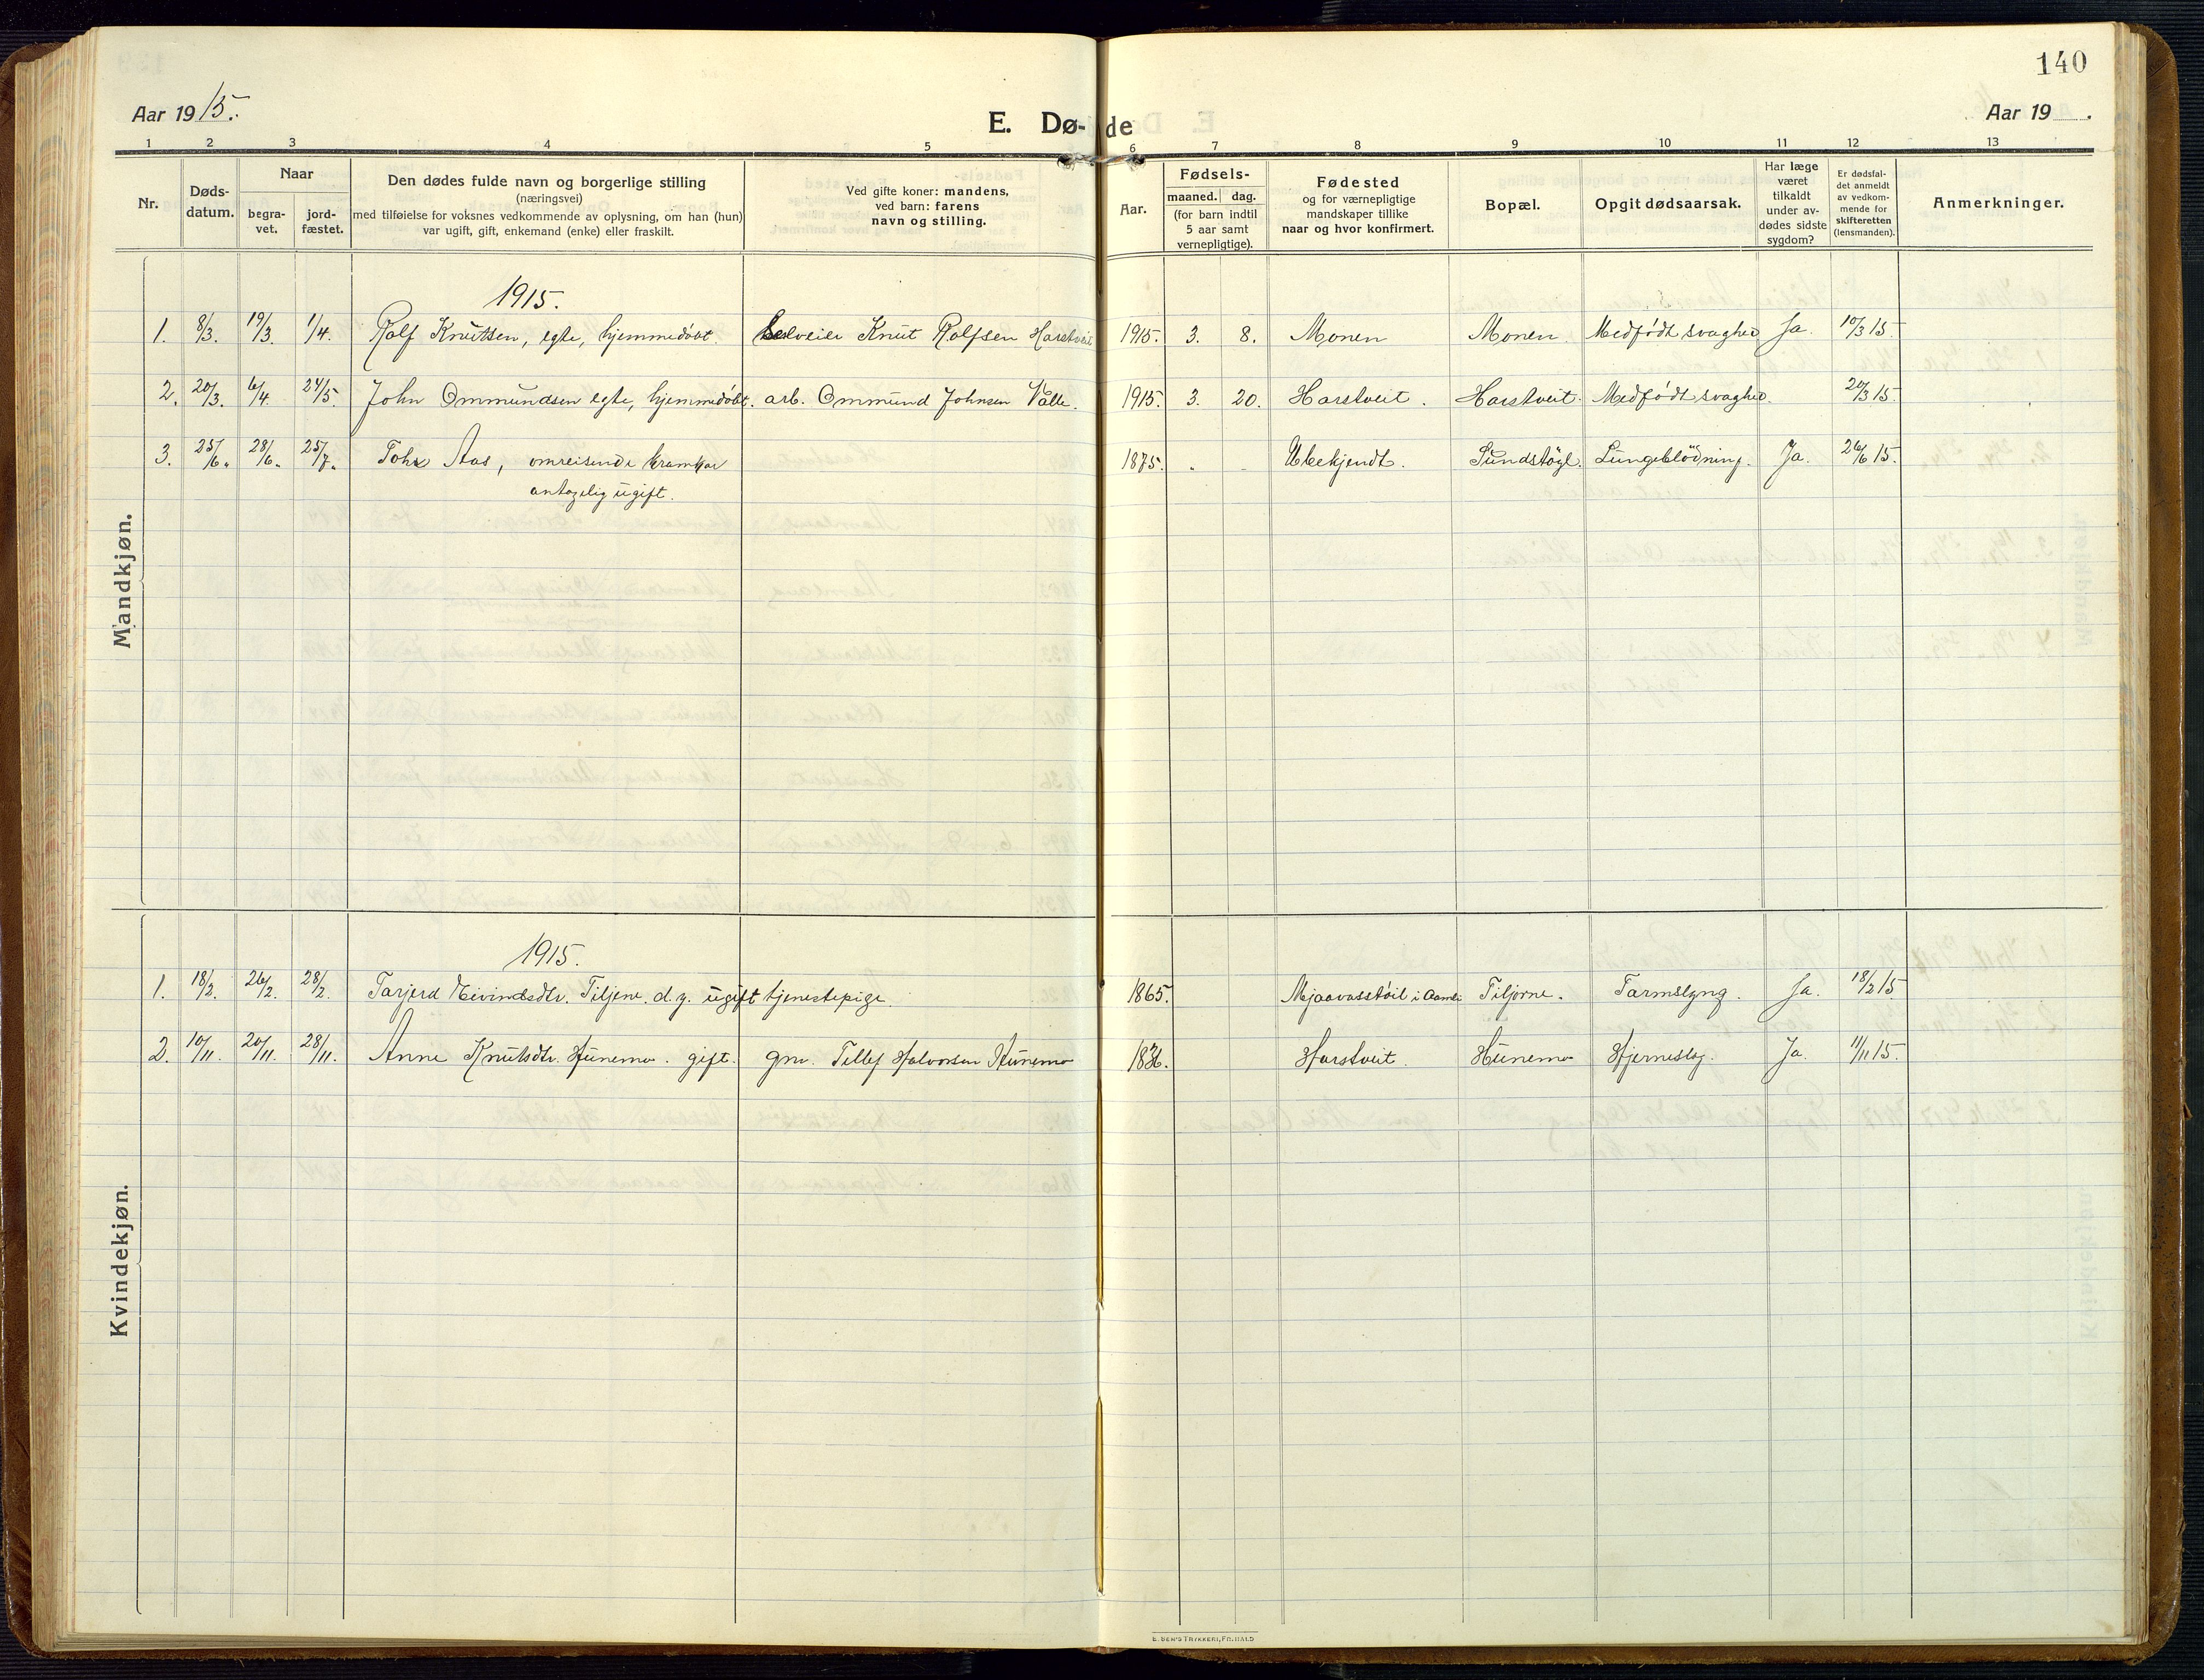 140
Aar 1915.
E. Dø-de
Aar 19 .
1 2 3 4 5 6 7 8 9 10 11 12 13
Nr.
Døds-
datum.
Naar
begra-
vet.
jord-
fæstet.
Den dødes fulde navn og borgerlige stilling
(næringsvei)
med tilføielse for voksnes vedkommende av oplysning, om han (hun)
var ugift, gift, enkemand (enke) eller fraskilt.
Ved gifte koner: mandens,
ved barn: farens
navn og stilling.
Aar.
Fødsels-
maaned. dag.
(for barn indtil
5 aar samt
vernepligtige).
Fødested
og for værnepligtige
mandskaper tillike
naar og hvor konfirmert.
Bopæl.
Opgit dødsaarsak.
Har læge
været
tilkaldt
under av-
dødes sidste
sygdom?
Er dødsfal-
det anmeldt
av vedkom-
mende for
skifteretten
(lensmanden).
Anmerkninger.
Mandkjøn.
1915.
1. 8/3. 19/3. 1/4. Rolf Knutsen, egte, hjemmedøbt. Selveier Knut Rolfsen Harstveit 1915. 3. 8. Monen Monen. Medfødt svaghed Ja. 10/3 15.
2. 20/3. 6/4. 24/5. John Ommundsen egte, hjemmedøbt. arb. Ommund Johnsen Valle. 1915. 3. 20. Harstveit. Harstveit. Medfødt svaghed. 20/3 15.
3. 25/6. 28/6. 25/7. Aas, omreisende kramkar 1875. Ubekjendt. Sundstøgl. Lungeblødning. Ja. 26/6 15.
antagelig ugift.
Kvindekjøn.
1915.
1. 18/2. 26/2. 28/2. Tarjerd Eivindsdtr. Tiljene. d.y. ugift tjenestepige. 1865. i Aamli Tiljorne. Tarmslyng. Ja. 18/2 15
2. 10/11. 20/11. 28/11. Anne Knutsdtr. Hunemo. gift. gm. Tellef Halvorsen Hunemo Harstveit. Hunemo Hjerneslag. Ja. 11/11 15.
E. SEM'S TRYKKERI, FR. HALD